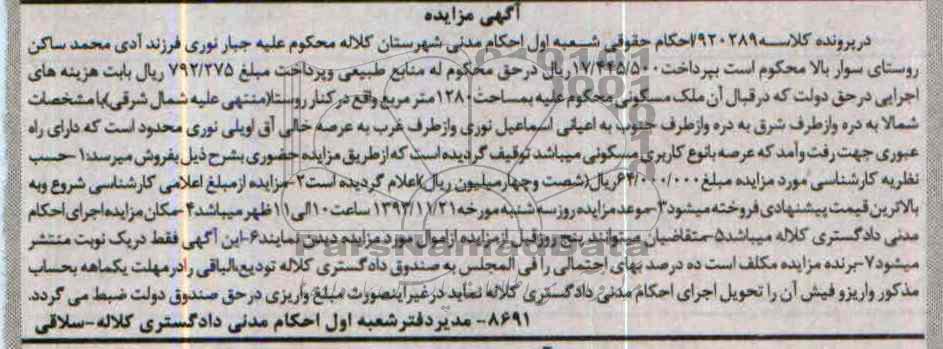 آگهی مزایده
درپرونده کلاسه۹۲۰۲۸۹/احکام حقوقی شعبه اول احکام مدنی شهرستان کلاله محکوم علیه جبار نوری فرزند آدی محمد ساکن
روستای سوار بالا محکوم است بپرداخت۱۷/۴۴۵/۵۰۰ریال درحق محکوم له منابع طبیعی وپرداخت مبلغ ۷۹۲/۳۷۵ ریال بابت هزینه های
اجرایی درحق دولت که درقبال آن ملک مسکونی محکوم علیه بمساحت۱۲۸۰متر مربع واقع درکنار روستا(منتهی علیه شمال شرقی)بامشخصات
شمالا به دره وازطرف شرق به دره وازطرف جنوب به اعیانی اسماعیل نوری وازطرف غرب به عرصه خالی آق اویلی نوری محدود است که دارای راه
عبوری جهت رفت وآمد که عرصه بانوع کاربری مسکونی میباشد توقیف گردیده است که ازطریق مزایده حضوری بشرح ذیل بفروش میرسد:۱-حسب
نظریه کارشناسی مورد مزایده مبلغ۶۴/۰۰۰/۰۰۰ریال(شصت وچهارمیلیون ریال)اعلام گردیده است۲-مزایده ازمبلغ اعلامی کارشناسی شروع وبه
بالاترین قیمت پیشنهادی فروخته میشود۳-موعدمزایده روزسه شنبه مورخه۱۳۹۳/۱۱/۲۱ ساعت۱۰الی۱۱ظهر میباشد۴-مکان مزایده اجرای احکام
مدنی دادگستری کلاله میباشد۵-متقاضیان میتوانند پنج روزقبل ازمزایده ازاموال مورد مزایده دیدن نمایند۶-این آگهی فقط دریک نوبت منتشر
میشود۷-برنده مزایده مکلف است ده درصد بهای احتمالی را فی المجلس به صندوق دادگستری کلاله تودیع،الباقی رادرمهلت یکماهه بحساب
مذکور واریزو فیش آن را تحویل اجرای احکام مدنی دادگستری کلاله نماید درغیراینصورت مبلغ واریزی درحق صندوق دولت ضبط می گردد.
۸۶۹۱- مدیردفترشعبه اول احکام مدنی دادگستری کلاله-سلاقی
ParsNamadData